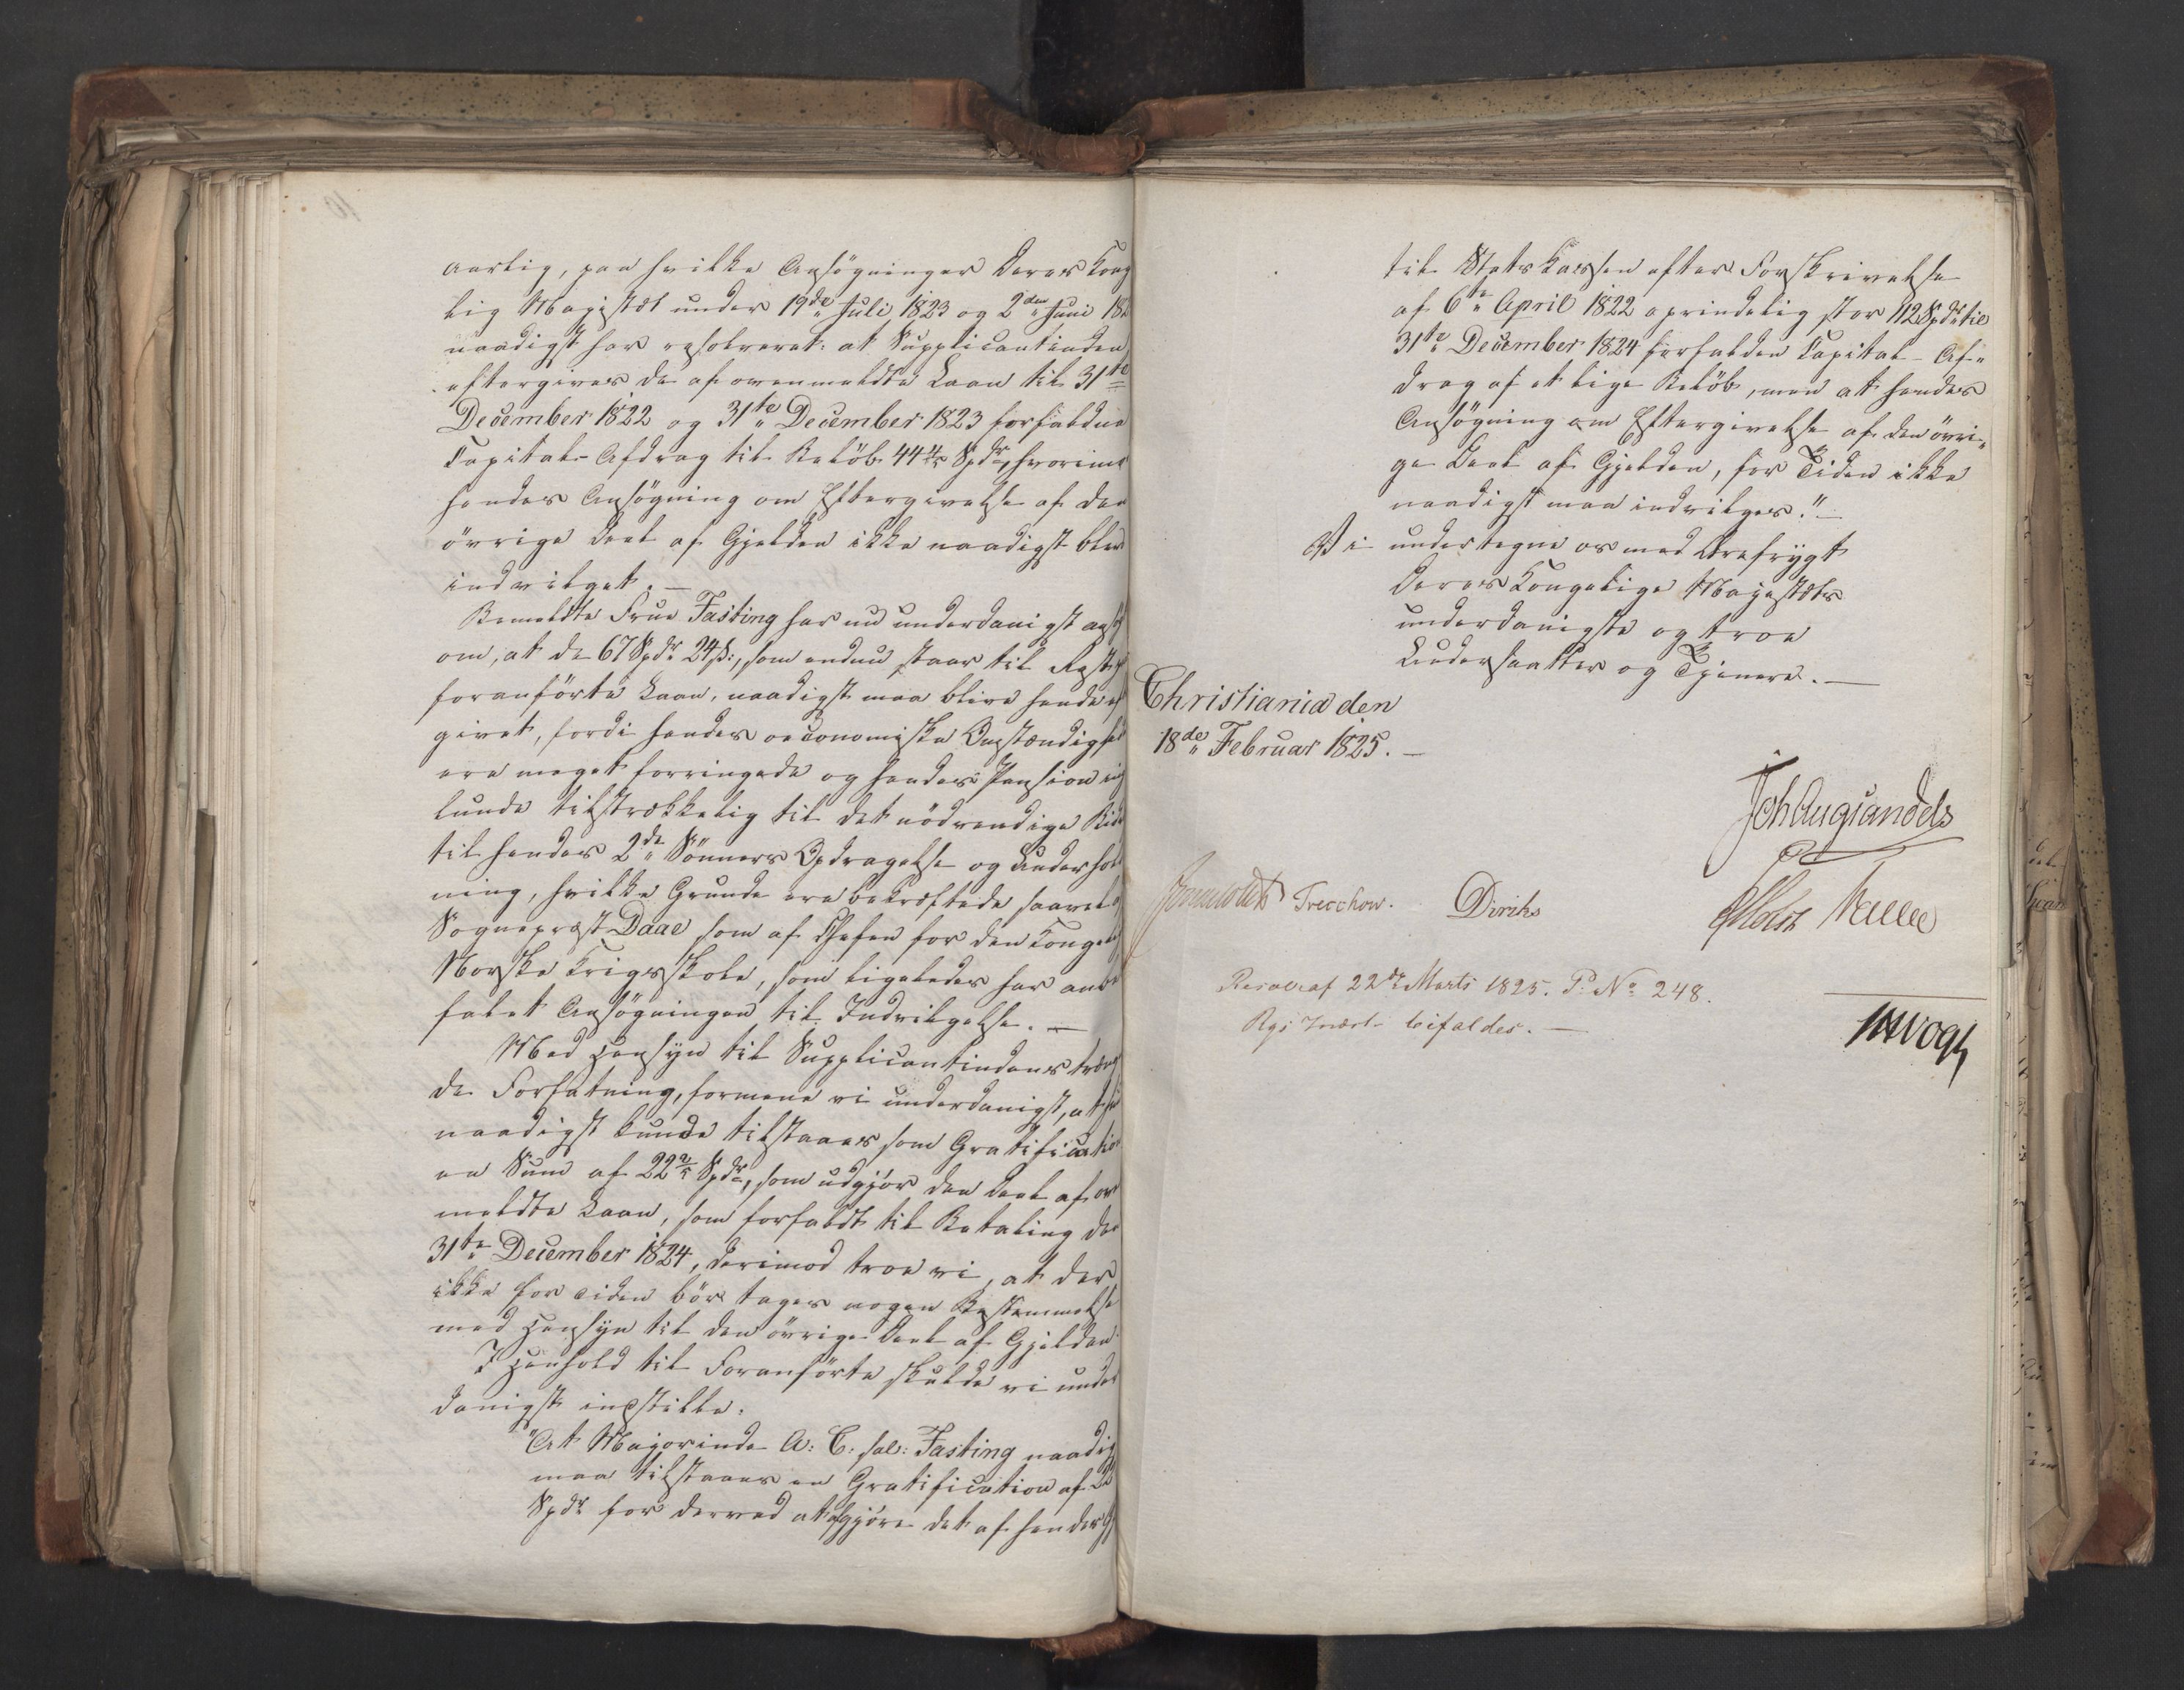 aarlig, paa hvilke Ansögninger Deres Kong
lig Majestæt under 19de Juli 1823 og 2den Juni 182
naadigst har resolveret: at Supplicantinden
eftergives de af ovenmeldte Laan til 31te
December 1822 og 31te December 1823 forfaldne
Capital-Afdrag til Beløb 44 4/5 Spdr, hvorimod
hendes Ansögning om Eftergivelse af den
övrige Deel af Gjelden ikke naadigst blev
indvilget. —
Bemeldte Frue Fasting har nu underdanigst ansög
om, at de 67 Spdr 24 ß:, som endnu staar til Rest af
foranförte Laan, naadigst maa blive hende ef
givet, fordi hendes oeconomiske Omstændighed
ere meget forringede og hendes Pension ing
lunde tilstrækkelig til det nödvendige Bid
til hendes 2de Sönners Opdragelse og Underhol
ning, hvilke Grunde ere bekræftede saavel af
Sognepræst Daae som af Chefen for den Kongel
Norske Krigsskole, som ligeledes har anbe
falet Ansögningen til Indvilgelse. —
Med Hensyn til Supplicantindens træng
de Forfatning, formene vi underdanigst, at hu
naadigst kunde tilstaaes som Gratification
en Sum af 22 2/5 Spdr, som udgjör den Deel af ov
meldte Laan, som forfaldt til Betaling den
31te December 1824, derimod troe vi, at der
ikke for Tiden bör tages nogen Bestemmelse
med Hensyn til den övrige Deel af Gjelden.
I Henhold til Foranförte skulde vi under
danigst indstille:
"At Majorinde A: C: sal: Fasting naadig
maa tilstaaes en Gratification af 22
Spdr for derved at afgjöre det af hendes Gj
til Stats Kassen efter Forskrivelse
af 6te April 1822 oprindelig stor 112 Spdr til
31te December 1824 forfaldne Capital-Af-
drag af et lige Belöb, men at hendes
Ansögning om Eftergivelse af den övri-
ge Deel af Gjelden, for Tiden ikke
naadigst maa indvilges." —
Vi undertegne os med Ærefrygt
Deres Kongelige Majestæts
underdanigste og troe
Undersaatter og Tjenere. —
Christiania den
18de Februar 1825. —
Joh Aug Sandels
Sommerhielm Treschow. Diriks PMotzfeldt Collett
Resol: af 22de Marts 1825. P: No 248.
Rgs Indst bifaldes. —
JHVogt